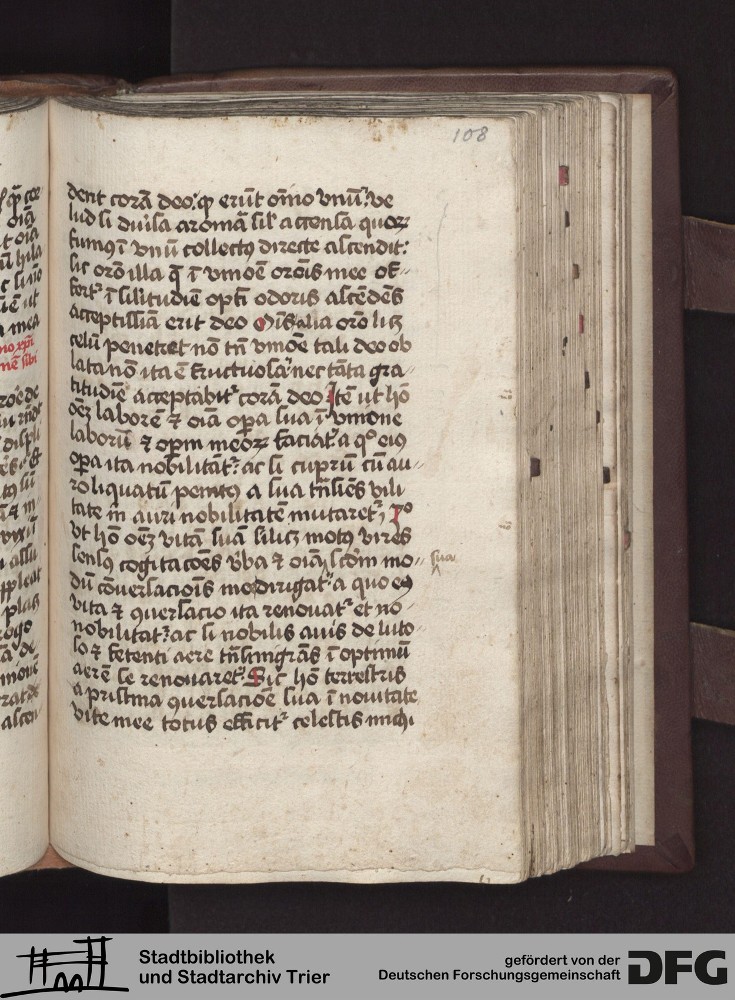 108
dent corā deo: ꝙ erūt oīno vnū: ve
lud si diu͛sa aromā sil' accensa quoꝝ
fumꝰ ī vnū collectꝰ directe ascendit:
sic orō illa q̄ ī vnioē orōis mee of-
fert᷑ ī silitudiē optī odoris ascēdēs
acceptissīa erit deo Oīs alia orō lꝫ
celū penetret nō tn̄ vnioē tali deo ob
lata nō ita ē fructuosa: nec tāta gra-
titudīe acceptabit᷑ corā deo Itē ut hō
oēꝫ laborē ⁊ oīa oꝑa sua ī vnione
laborū ⁊ opm̄ meoꝝ faciat: a qͦ eiꝰ
oꝑa ita nobilitāt᷑: ac si cuprū cū au-
ro liquatū penitꝰ a sua vili
tate in auri nobilitatē mutaret᷑
vt hō oēꝫ vitā suā silicꝫ motꝰ vires
sensꝰ cogitacōēs v̄ba ⁊ oīa scd̄m mo-
sua
dū cōuersacioīs me dirigat: a quo eiꝰ
vita ⁊ ꝯuersacio ita renouat᷑ et no-
nobilitat᷑: ac si nobilis auis de luto-
so ⁊ fetenti aere ī optimū
aerē se renouaret᷑. Sic hō terrestris
a pristina ꝯuersacioē sua ī nouitate
vite mee totus efficit᷑ celestis michi
Stadtbibliothek
und Stadtarchiv Trier
gefördert von der
Deutschen Forschungsgemeinschaft
DFG